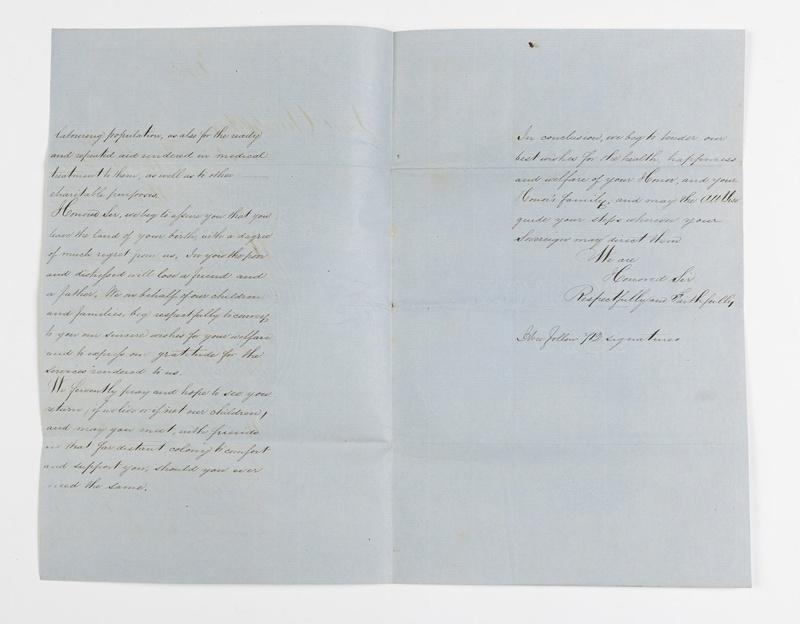 labouring population, as also for the ready
and repeated aid rendered in medical
treatment to them, as well as to other
charitable purposes.
Honored Sir, we beg to assure you that you
leave the land of your birth, with a degree
of much regret from us. In you the poor
and distressed will lose a friend and
a father. We on behalf of our children
and families, beg respectfully to convey
to you our sincere wishes for your welfare
and to express our gratitude for the
services rendered to us.
We fervently pray and hope to see you
return, if we live or if not our children,
and may you meet, with friends
in that far distant colony to comfort
and support you, should you ever
need the same.
In conclusion, we beg to tender our
best wishes for the health, happiness
and welfare of your Honor, and your
Honor's family, and may the All Wise
guide your steps wherever your
Sovereign may direct them
We are
Honored Sir
Respectfully and Faithfully
Here follow 72 signatures